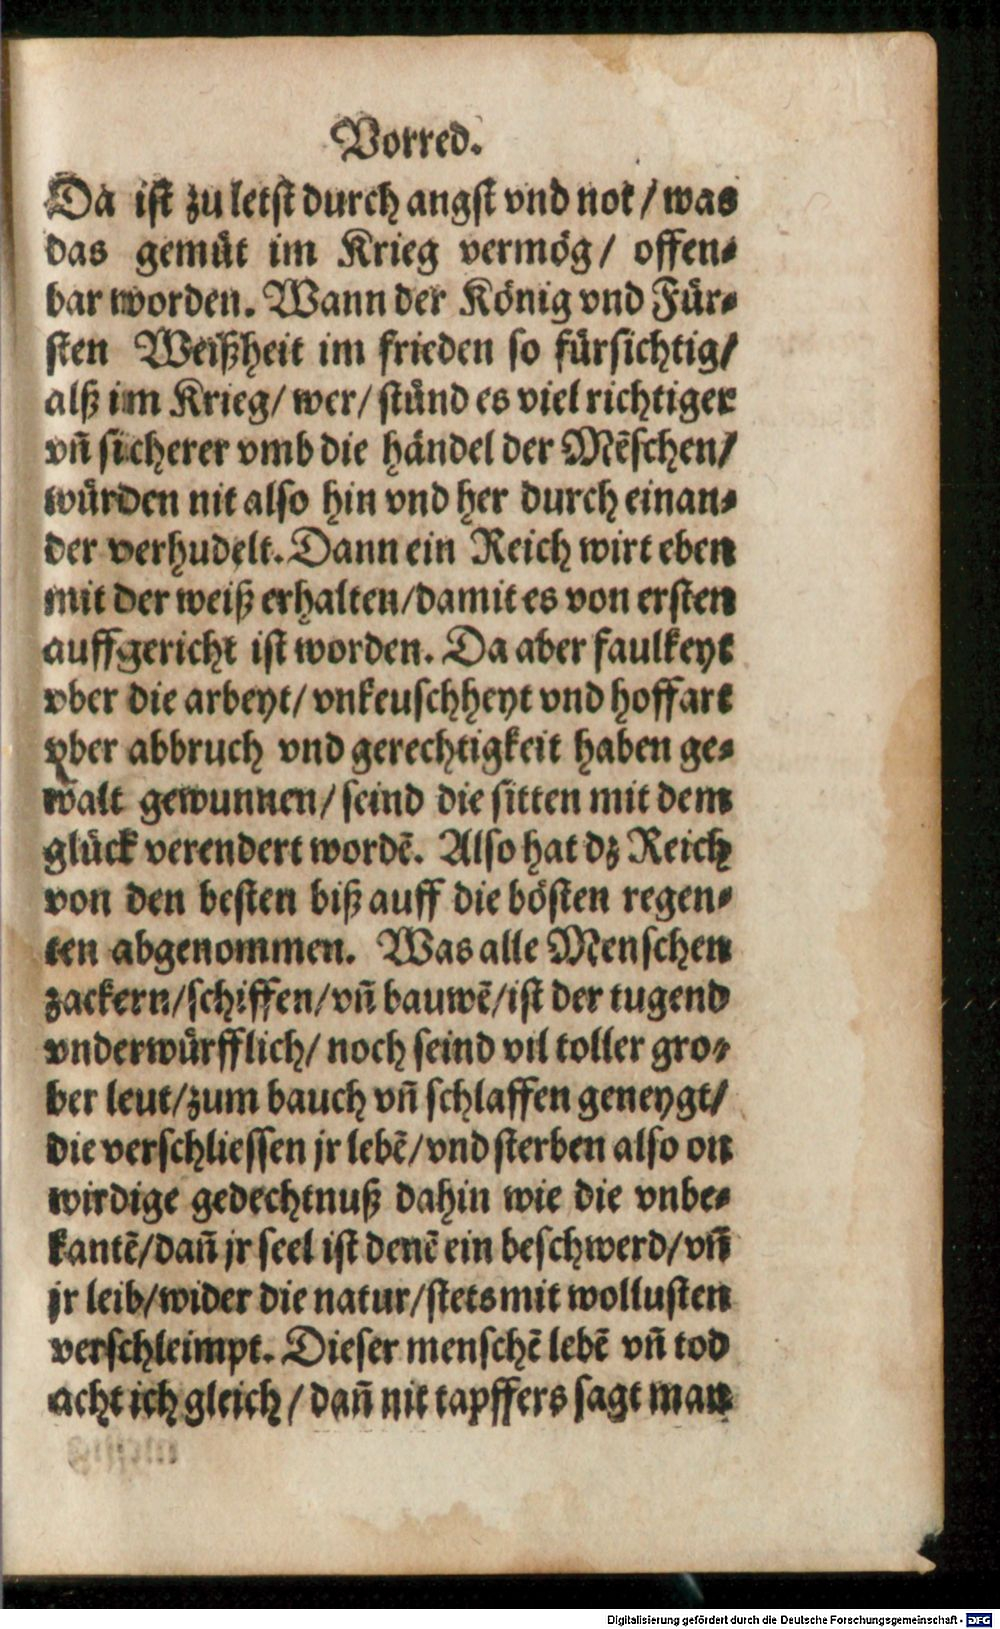 Vorred.
Da ist zu letst durch angst vnd not / was
das gemüt im Krieg vermög / offen-
bar worden. Wann der König vnd Für-
sten Weißheit im frieden so fürsichtig /
alß im Krieg / wer / stünd es viel richtiger
vñ sicherer vmb die händel der Mẽschen /
würden nit also hin vnd her durch einan-
der verhudelt. Dann ein Reich wirt eben
mit der weiß erhalten / damit es von ersten
auffgericht ist worden. Da aber faulkeyt
vber die arbeyt / vnkeuschheyt vnd hoffart
vber abbruch vnd gerechtigkeit haben ge-
walt gewunnen / seind die sitten mit dem
glück verendert wordẽ. Also hat dz Reich
von den besten biß auff die bösten regen-
ten abgenommen. Was alle Menschen
zackern / schiffen / vñ bauwẽ / ist der tugend
vnderwürfflich / noch seind vil toller gro-
ber leut / zum bauch vñ schlaffen geneygt /
die verschliessen jr lebẽ / vnd sterben also on
wirdige gedechtnuß dahin wie die vnbe-
kantẽ / dañ jr seel ist denẽ ein beschwerd / vñ
jr leib / wider die natur / stets mit wollusten
verschleimpt. Dieser menschẽ lebẽ vñ tod
acht ich gleich / dañ nit tapffers sagt man
Digitalisierung gefördert durch die Deutsche Forschungsgemeinschaft - DFG